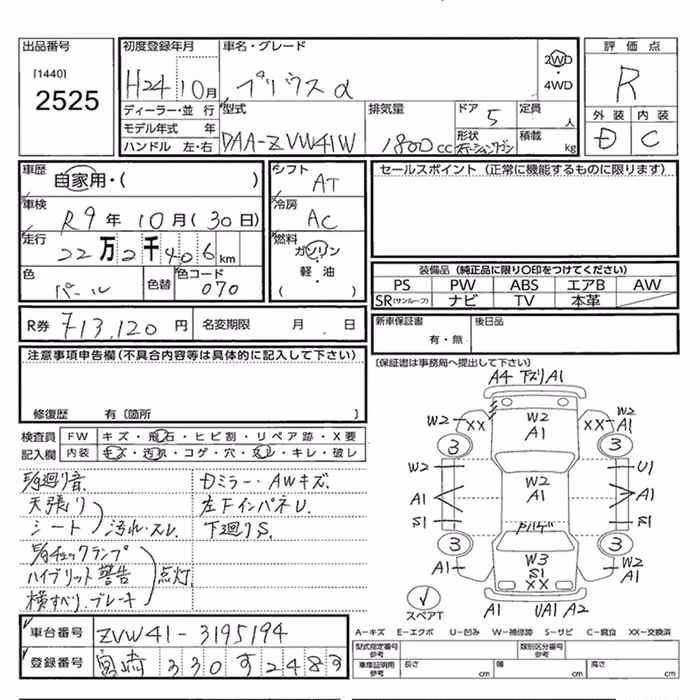 出品番号
[1440]
2525
初度登録年月
H24 10月
車名・グレード
プリウスα
2WD
・
4WD
評価点
R
外装 内装
D C
ディーラー・並行
モデル年式 年
ハンドル 左・右
型式
DAA-ZVW41W
排気量
1800cc
ドア 5
形状
ステーションワゴン
定員 人
積載 kg
車歴
自家用・( )
車検
R9年10月(30日)
走行
22万2千406km
色
パール
色替
色コード
070
シフト
AT
冷房
AC
燃料
ガソリン
軽・油
( )
セールスポイント (正常に機能するものに限ります)
装備品 (純正品に限り○印をつけてください)
PS PW ABS エアB AW
SR(サンルーフ) ナビ TV 本革
R券 ¥13,120円 名変期限 月 . 日
新車保証書
有・無
後日品
(保証書は事務局へ提出して下さい)
注意事項申告欄(不具合内容等は具体的に記入して下さい)
修復歴 有〔箇所 〕
検査員 FW キズ・飛石・ヒビ割・リペア跡・X要
記入欄 内装 キズ・汚れ・コゲ・穴・スレ・キレ・破レ
天張り
シート
汚れ・スレ
チェックランプ
ハイブリット警告
横すべり.ブレーキ
点灯.
Dミラー・AWキズ.
左FインパネU.
下廻りS.
A4 下ズリA1
W2 XX W2 A1 XX W2 A1
3 3
W2 U1
A1 W2 A1 A1
S1 S1
3 3
A1 W3 S1 XX W2 A1
スペアT
A1 UA1 A2
車台番号 ZVW41-3195194
登録番号 宮崎 330す2483
A−キズ E−エクボ U−凹み W−補修跡 S−サビ C−腐食 XX−交換済
型式指定番号
参考
類別区分番号
参考
車庫証明用
参考
長さ cm 幅 cm 高さ cm